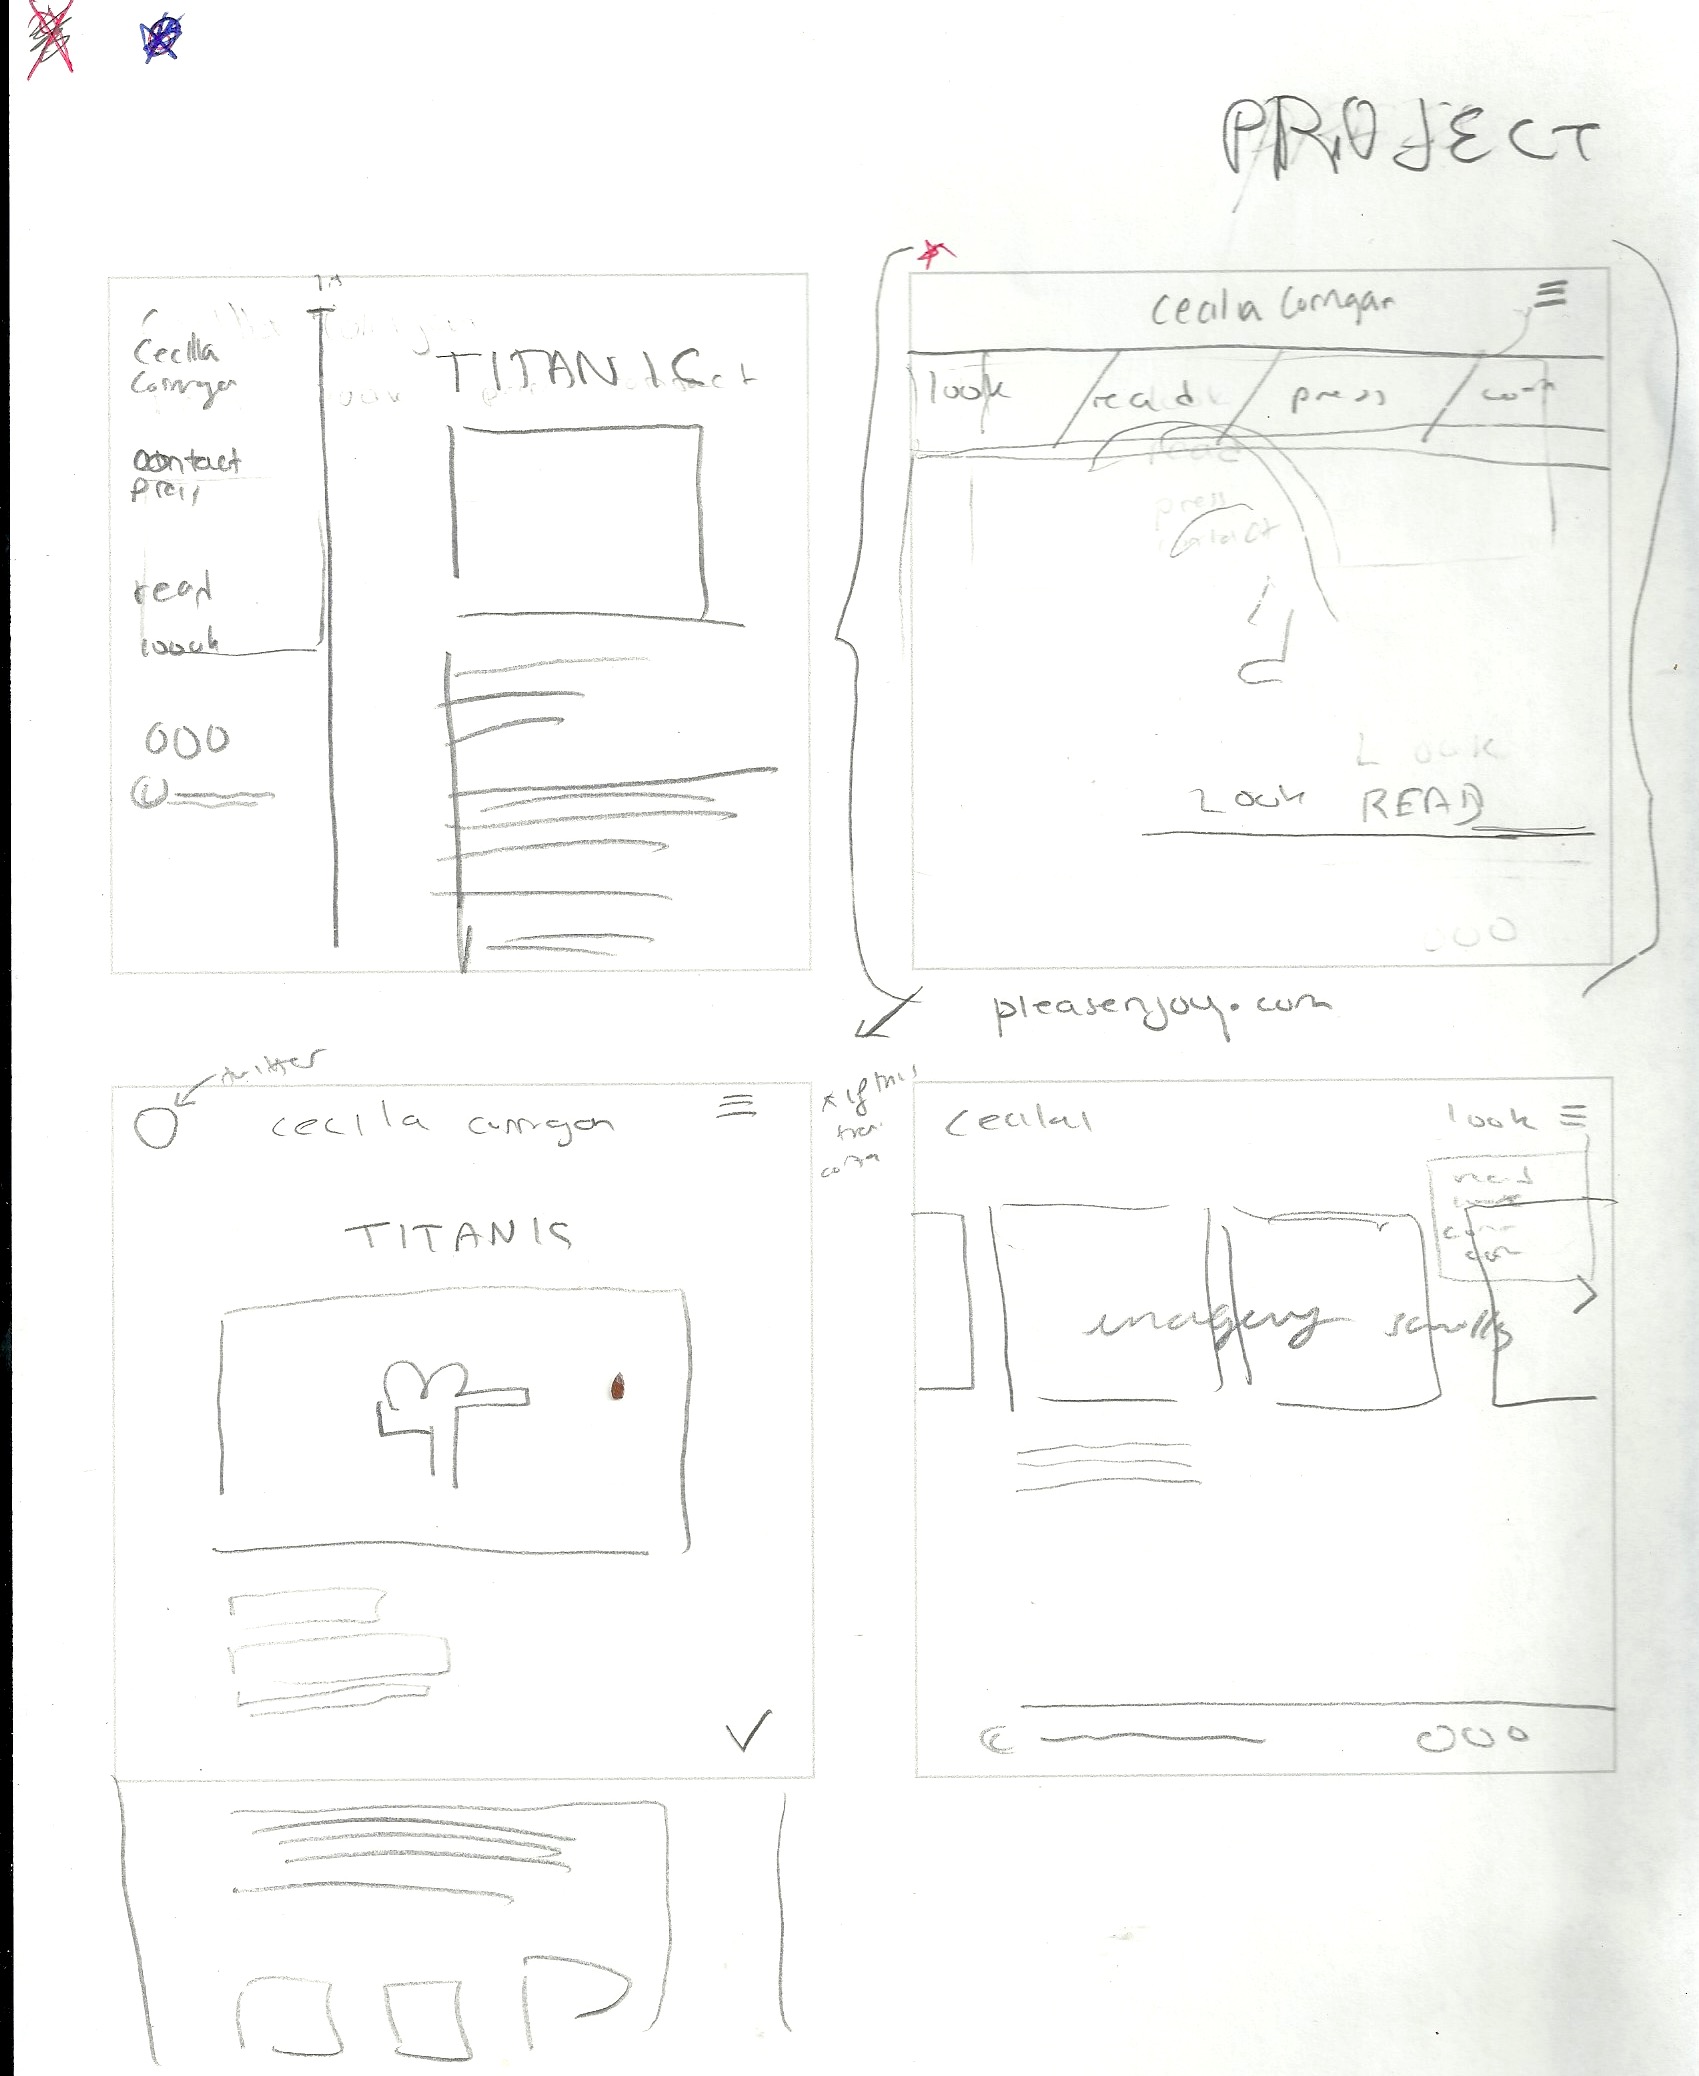 PROJECT
Cecilla
Corrigan
TITANIC
contact
press
read
loook
©
Cecilia Corrigan
look
read
press
con
press
contact
Look
Look READ
pleasenjoy.com
twitter
cecilla corrigan
TITANIC
* if this
Cecilal
look
read
look
imagery scrolls
©